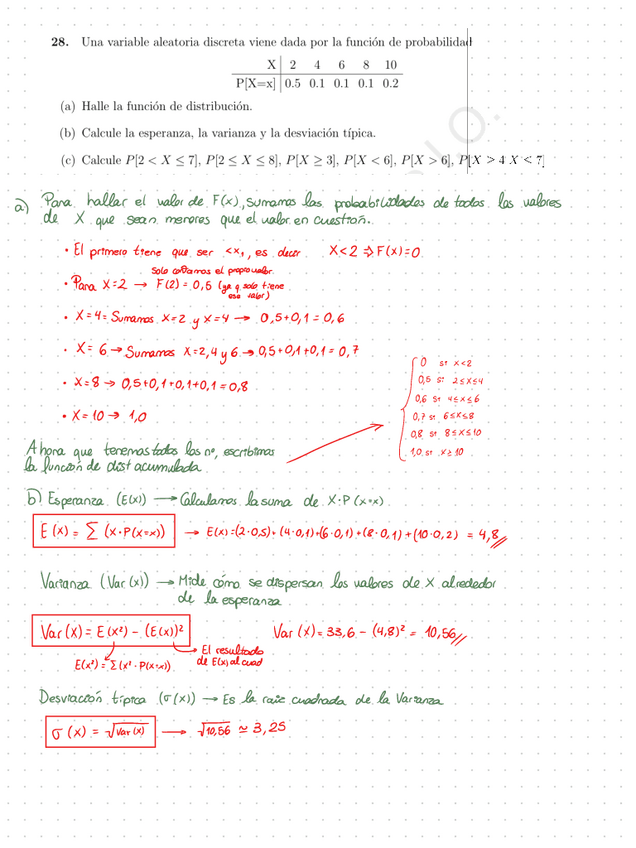 28. Una variable aleatoria discreta viene dada por la función de probabilidad
X 2 4 6 8 10
P[X=x] 0.5 0.1 0.1 0.1 0.2
(a) Halle la función de distribución.
(b) Calcule la esperanza, la varianza y la desviación típica.
(c) Calcule P[2 < X ≤ 7], P[2 ≤ X ≤ 8], P[X ≥ 3], P[X < 6], P[X > 6], P[X > 4 X < 7]
a) Para hallar el valor de F(x), sumamos las probabilidades de todos los valores
de X que sean menores que el valor en cuestión.
• El primero tiene que ser <x₁, es decir X<2 ⇒ F(x)=0
• Para X=2 → Solo cogamos el propio valor F(2) = 0,5 (ya q solo tiene ese valor)
• X=4 = Sumamos X=2 y X=4 → 0,5+0,1 = 0,6
• X= 6 → Sumamos X=2,4 y 6 → 0,5+0,1+0,1 = 0,7
• X=8 → 0,5+0,1+0,1+0,1=0,8
• X=10 → 1,0
0 si x<2
0,5 si 2≤x≤4
0,6 si 4≤x≤6
0,7 si 6≤x≤8
0,8 si 8≤x≤10
1,0 si x≥10
Ahora que tenemos todos los nº, escribimos
la función de dist acumulada.
b) Esperanza (E(x)) → Calculamos la suma de X·P(x=x)
E(x) = ∑ (x·P(x=x)) → E(x)=(2·0,5)+(4·0,1)+(6·0,1)+(8·0,1)+(10·0,2) = 4,8
Varianza (Var(x)) → Mide cómo se dispersan los valores de X alrededor
de la esperanza
Var(x) = E(x²) - (E(x))² Var(x) = 33,6 - (4,8)² = 10,56
E(x²) = ∑(x²·P(x=x)) → El resultado
de E(x) al cuad
Desviación típica (σ(x)) → Es la raiz cuadrada de la Varianza
σ(x) = √Var(x) → √10,56 ≃ 3,25